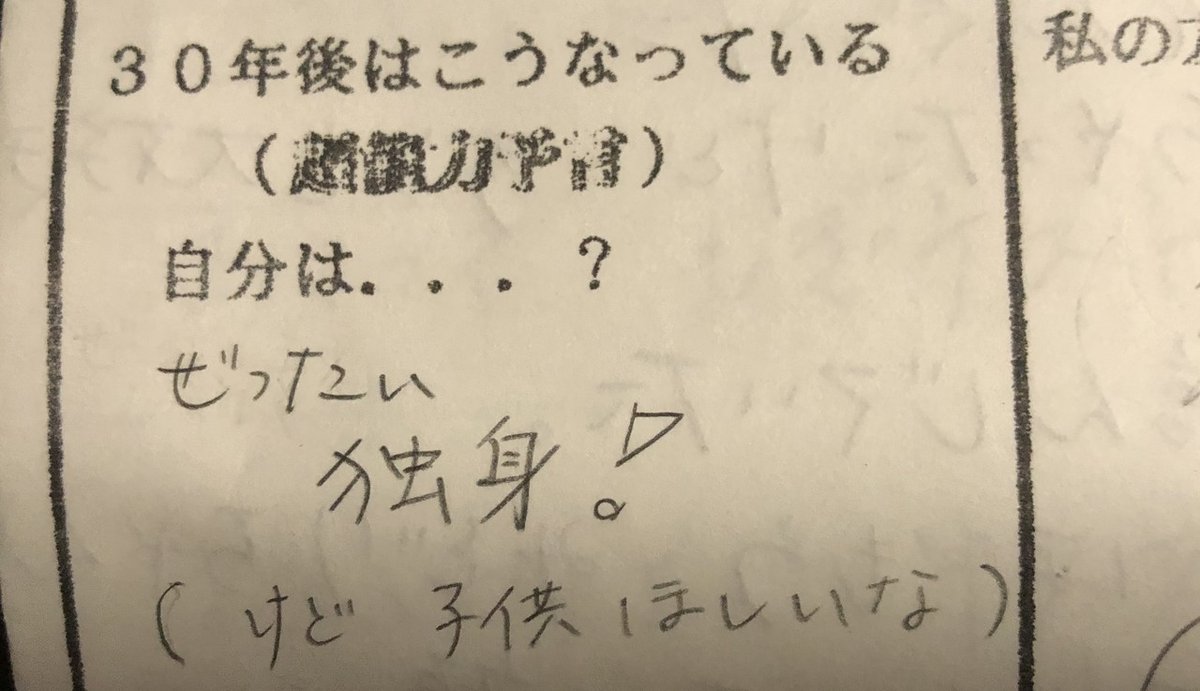 30年後はこうなっている
(超能力予言)
自分は...?
ぜったい
独身!
(けど 子供 ほしいな)
私の